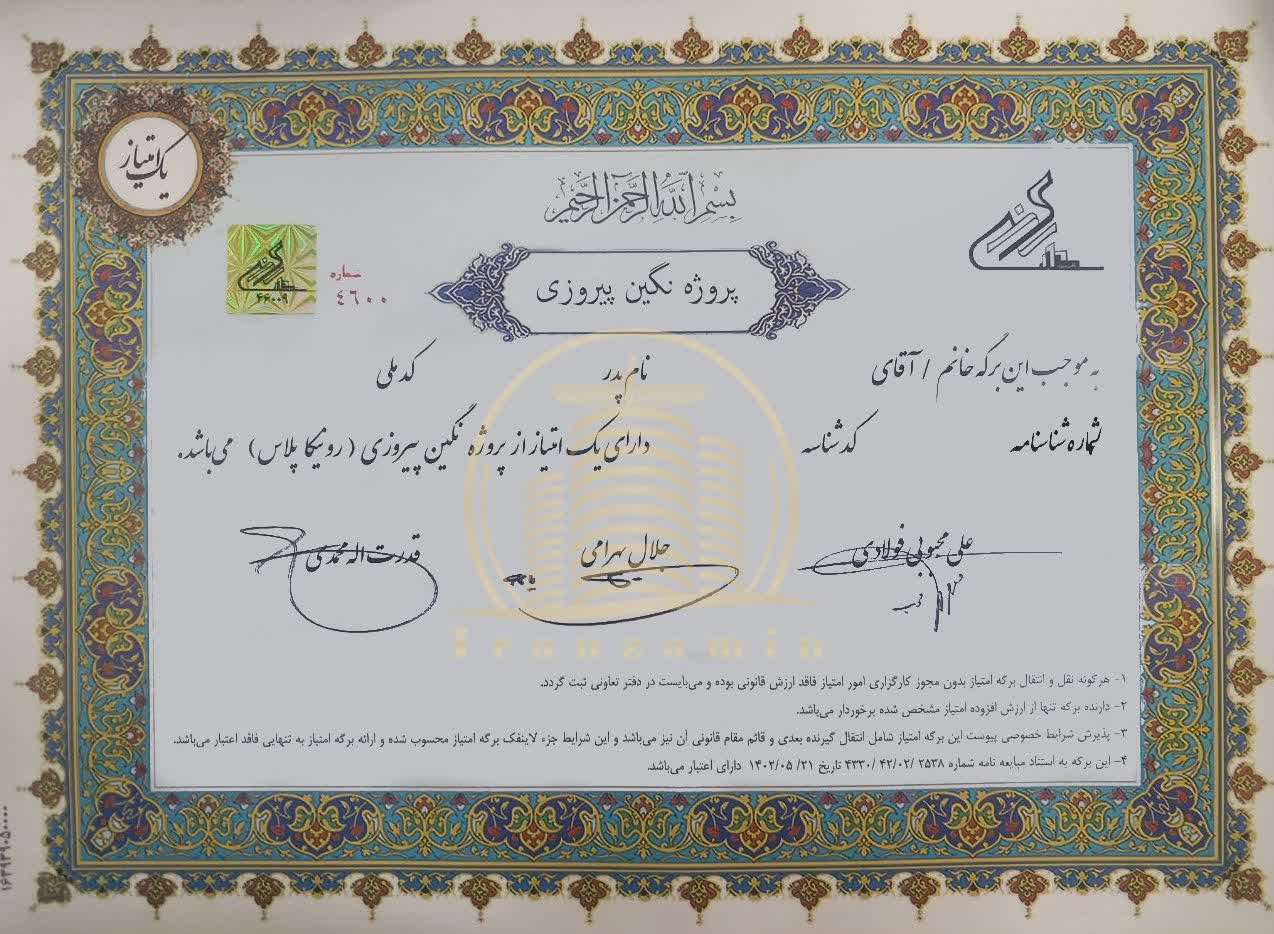 یک امتیاز
بسم الله الرحمن الرحیم
شماره
٤٦٠٠
۴۶۰۰۹
پروژه نگین پیروزی
به موجب این برگه خانم / آقای نام پدر کد ملی
شماره شناسنامه کد شناسه دارای یک امتیاز از پروژه نگین پیروزی (رونیکا پلاس) می‌باشد.
علی محبوبی فولادی جلال بهرامی قدرت اله محمدی
Iranzamin
۱- هرگونه نقل و انتقال برگه امتیاز بدون مجوز کارگزاری امور امتیاز فاقد ارزش قانونی بوده و می‌بایست در دفتر تعاونی ثبت گردد.
۲- دارنده برگه تنها از ارزش افزوده امتیاز مشخص شده برخوردار می‌باشد.
۳- پذیرش شرایط خصوصی پیوست این برگه امتیاز شامل انتقال گیرنده بعدی و قائم مقام قانونی آن نیز می‌باشد و این شرایط جزء لاینفک برگه امتیاز محسوب شده و ارائه برگه امتیاز به تنهایی فاقد اعتبار می‌باشد.
۴- این برگه به استناد مبایعه نامه شماره ۲۵۳۸ /۴۲/۰۲ /۴۳۳۰ تاریخ ۲۱/ ۱۴۰۲/۰۵ دارای اعتبار می‌باشد.